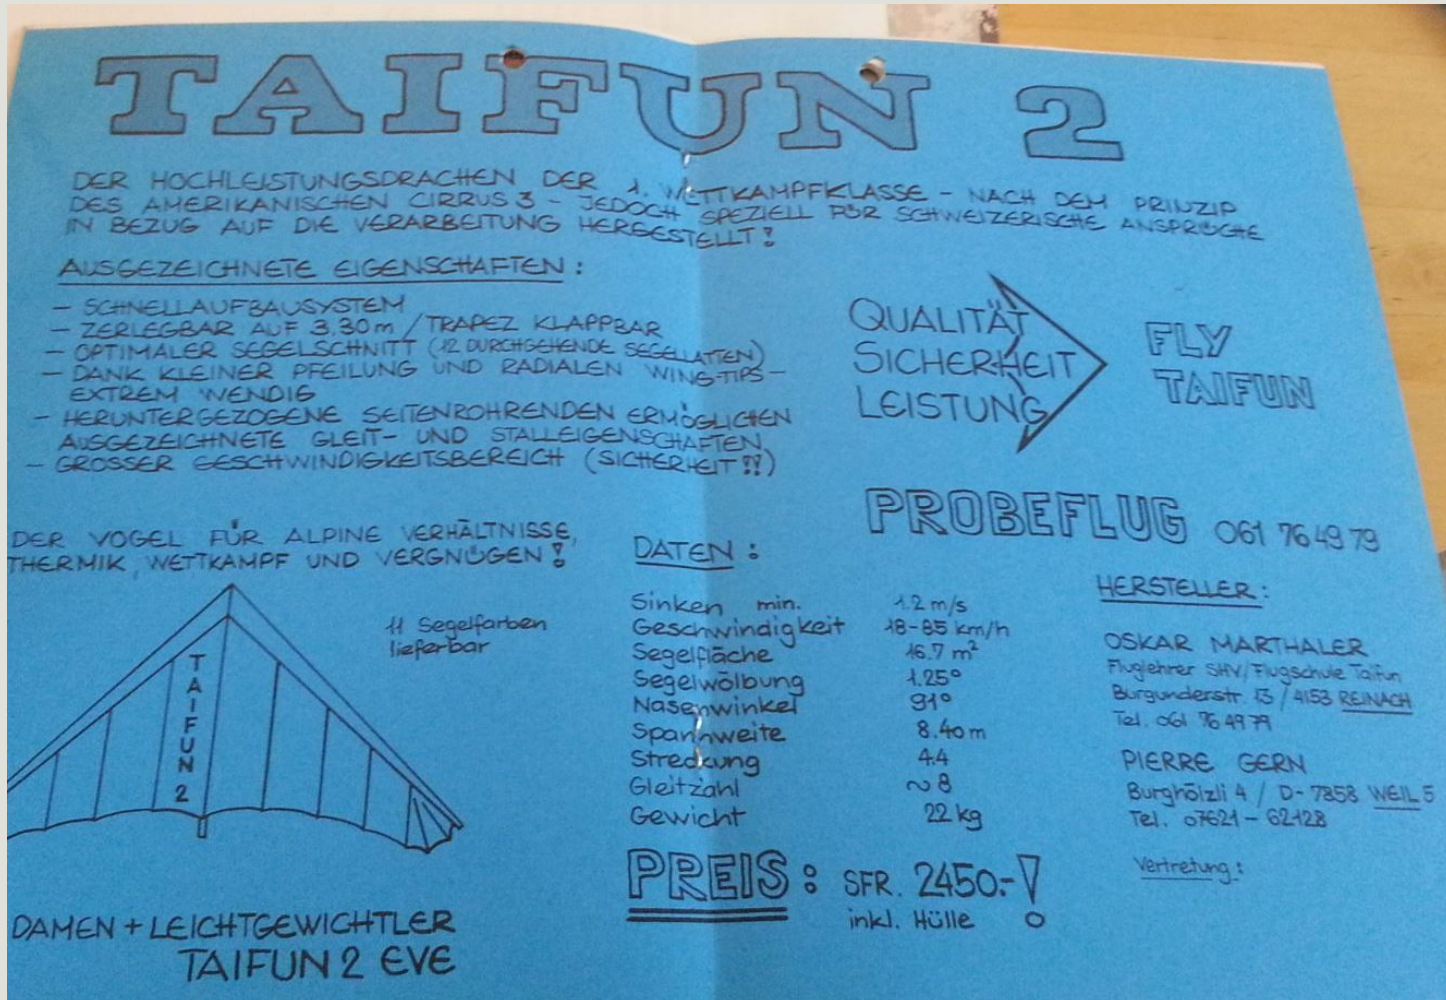 TAIFUN 2
DER HOCHLEISTUNGSDRACHEN DER 1. WETTKAMPFKLASSE - NACH DEM PRINZIP
DES AMERIKANISCHEN CIRRUS 3 - JEDOCH SPEZIELL FÜR SCHWEIZERISCHE ANSPRÜCHE
IN BEZUG AUF DIE VERARBEITUNG HERGESTELLT!
AUSGEZEICHNETE EIGENSCHAFTEN:
- SCHNELLAUFBAUSYSTEM
- ZERLEGBAR AUF 3.30m / TRAPEZ KLAPPBAR
- OPTIMALER SEGELSCHNITT (12 DURCHGEHENDE SEGELLATTEN)
- DANK KLEINER PFEILUNG UND RADIALEN WING-TIPS -
EXTREM WENDIG
- HERUNTERGEZOGENE SEITENROHRENDEN ERMÖGLICHEN
AUSGEZEICHNETE GLEIT- UND STALLEIGENSCHAFTEN
- GROSSER GESCHWINDIGKEITSBEREICH (SICHERHEIT!!)
QUALITÄT
SICHERHEIT
LEISTUNG
FLY
TAIFUN
PROBEFLUG 061 76 49 79
DER VOGEL FÜR ALPINE VERHÄLTNISSE,
THERMIK, WETTKAMPF UND VERGNÜGEN!
11 Segelfarben
lieferbar
TAIFUN 2
DAMEN + LEICHTGEWICHTLER
TAIFUN 2 EVE
DATEN:
Sinken min. 1.2 m/s
Geschwindigkeit 18-85 km/h
Segelfläche 16.7 m²
Segelwölbung 1.25°
Nasenwinkel 91°
Spannweite 8.40 m
Streckung 4.4
Gleitzahl ~ 8
Gewicht 22 kg
PREIS: SFR. 2450.-!
inkl. Hülle
HERSTELLER:
OSKAR MARTHALER
Fluglehrer SHV/Flugschule Taifun
Burgunderstr. 13 / 4153 REINACH
Tel. 061 76 49 79
PIERRE GERN
Burghölzli 4 / D-7858 WEIL 5
Tel. 07621 - 62128
Vertretung: